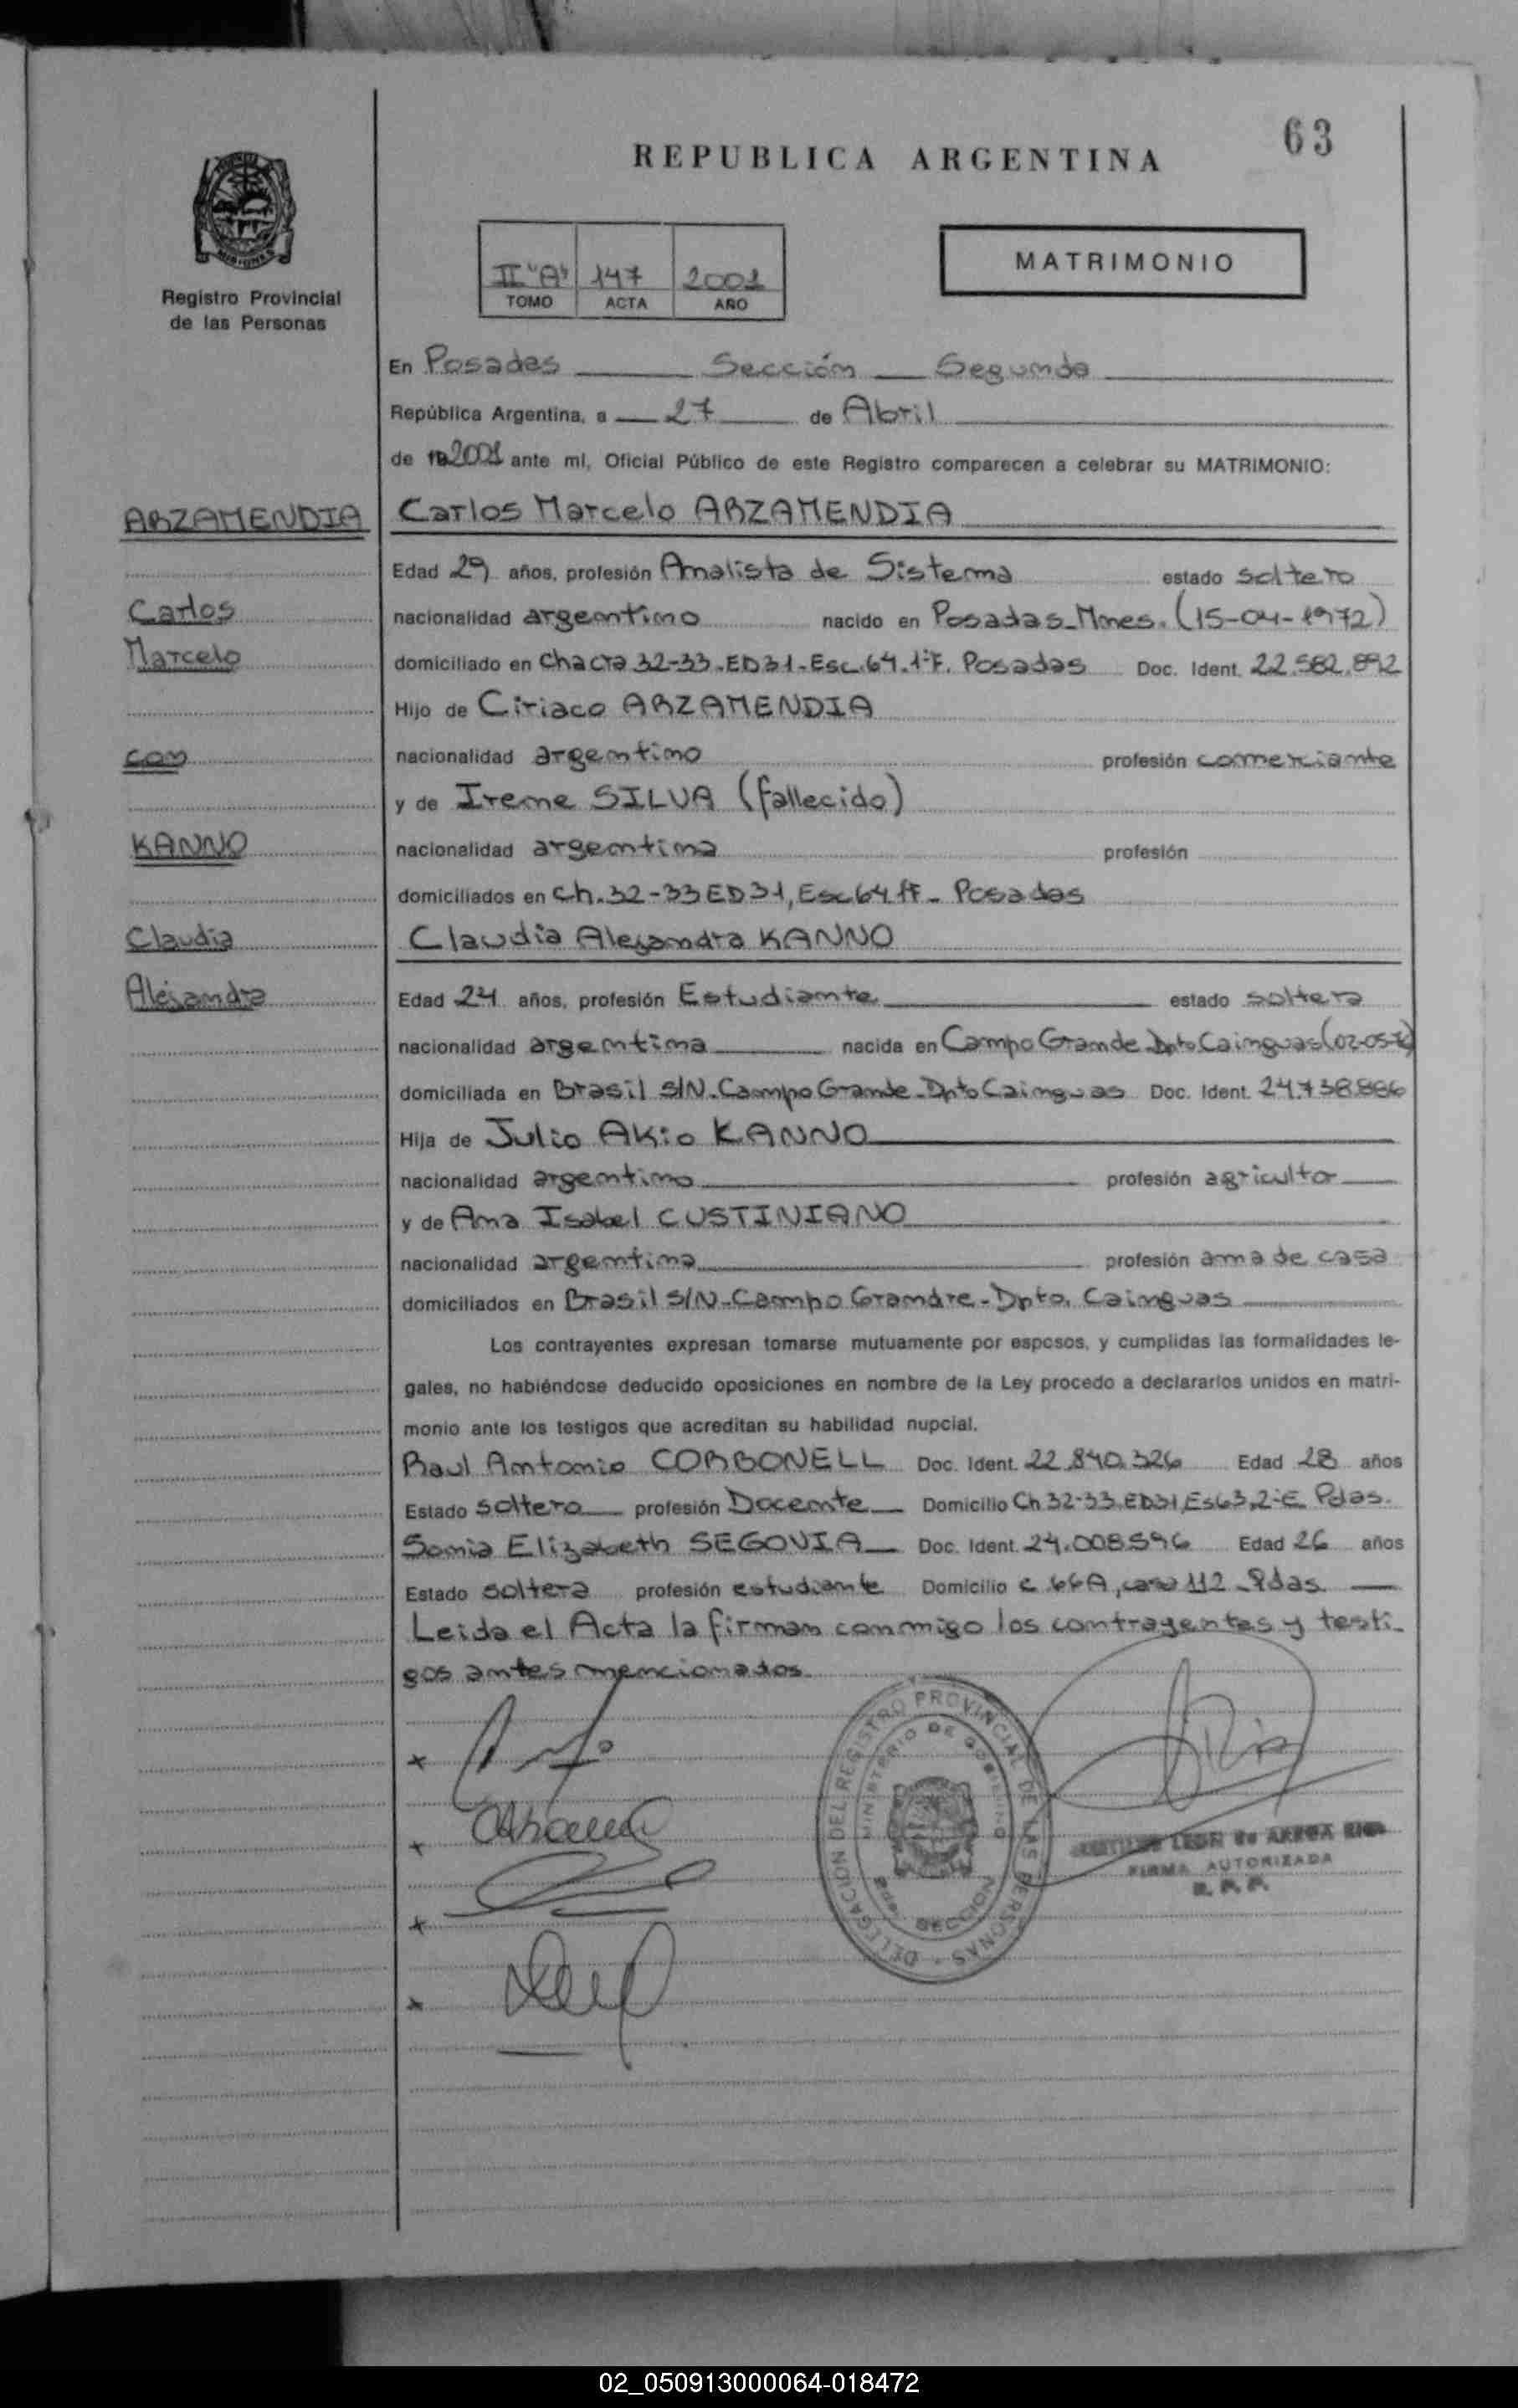 63
REPUBLICA ARGENTINA
MISIONES
Registro Provincial
de las Personas
II "A" 147 2001
TOMO ACTA AÑO
MATRIMONIO
En Posadas Sección Segunda
República Argentina, a 27 de Abril
de 2001 ante mí, Oficial Público de este Registro comparecen a celebrar su MATRIMONIO:
ARZAMENDIA
Carlos
Marcelo
con
KANNO
Claudia
Alejandra
Carlos Marcelo ARZAMENDIA
Edad 29 años, profesión Analista de Sistema estado soltero
nacionalidad argentino nacido en Posadas_Mnes. (15-04-1972)
domiciliado en Chacra 32-33-ED31-Esc.64.1ºF. Posadas Doc. Ident. 22.582.892
Hijo de Ciriaco ARZAMENDIA
nacionalidad argentino profesión comerciante
y de Irene SILVA (fallecido)
nacionalidad argentina profesión
domiciliados en Ch.32-33 ED31, Esc 64 1ºF - Posadas
Claudia Alejandra KANNO
Edad 24 años, profesión Estudiante estado soltera
nacionalidad argentina nacida en Campo Grande Dpto Cainguas
domiciliada en Brasil S/N-Campo Grande-Dpto Cainguas Doc. Ident. 24.738.886
Hija de Julio Akio KANNO
nacionalidad argentino profesión agricultor
y de Ana Isabel CUSTINIANO
nacionalidad argentina profesión ama de casa
domiciliados en Brasil S/N-Campo Grandre-Dpto. Cainguas
Los contrayentes expresan tomarse mutuamente por esposos, y cumplidas las formalidades le-
gales, no habiéndose deducido oposiciones en nombre de la Ley procedo a declararlos unidos en matri-
monio ante los testigos que acreditan su habilidad nupcial.
Raul Antonio CORBONELL Doc. Ident. 22.840.326 Edad 28 años
Estado soltero profesión Docente Domicilio Ch 32-33.ED31, Es63, 2ºE Pdas.
Sonia Elizabeth SEGOVIA Doc. Ident. 24.008.596 Edad 26 años
Estado soltera profesión estudiante Domicilio c 66A, casa 112 Pdas.
Leida el Acta la firman conmigo los contrayentes y testi-
gos antes mencionados
DELEGACION DEL REGISTRO PROVINCIAL DE LAS PERSONAS
MINISTERIO DE GOBIERNO
SECCION
LEON de
FIRMA AUTORIZADA
R. P. P.
02_050913000064-018472